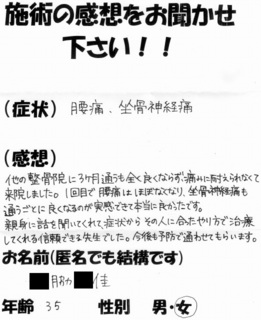 施術の感想をお聞かせ
下さい！！
(症状) 腰痛、坐骨神経痛
(感想)
他の整骨院に3ヶ月通うも全く良くならず痛みに耐えられなくて
来院しました。1回目で腰痛はほぼなくなり、坐骨神経痛も
通うごとに良くなるのが実感できて本当に良かったです。
親身に話を聞いてくれて、症状からその人に合たやり方で治療
してくれる信頼できる先生でした。今後も予防で通わせてもらいます。
お名前(匿名でも結構です)
佳
年齢 35 性別 男・女